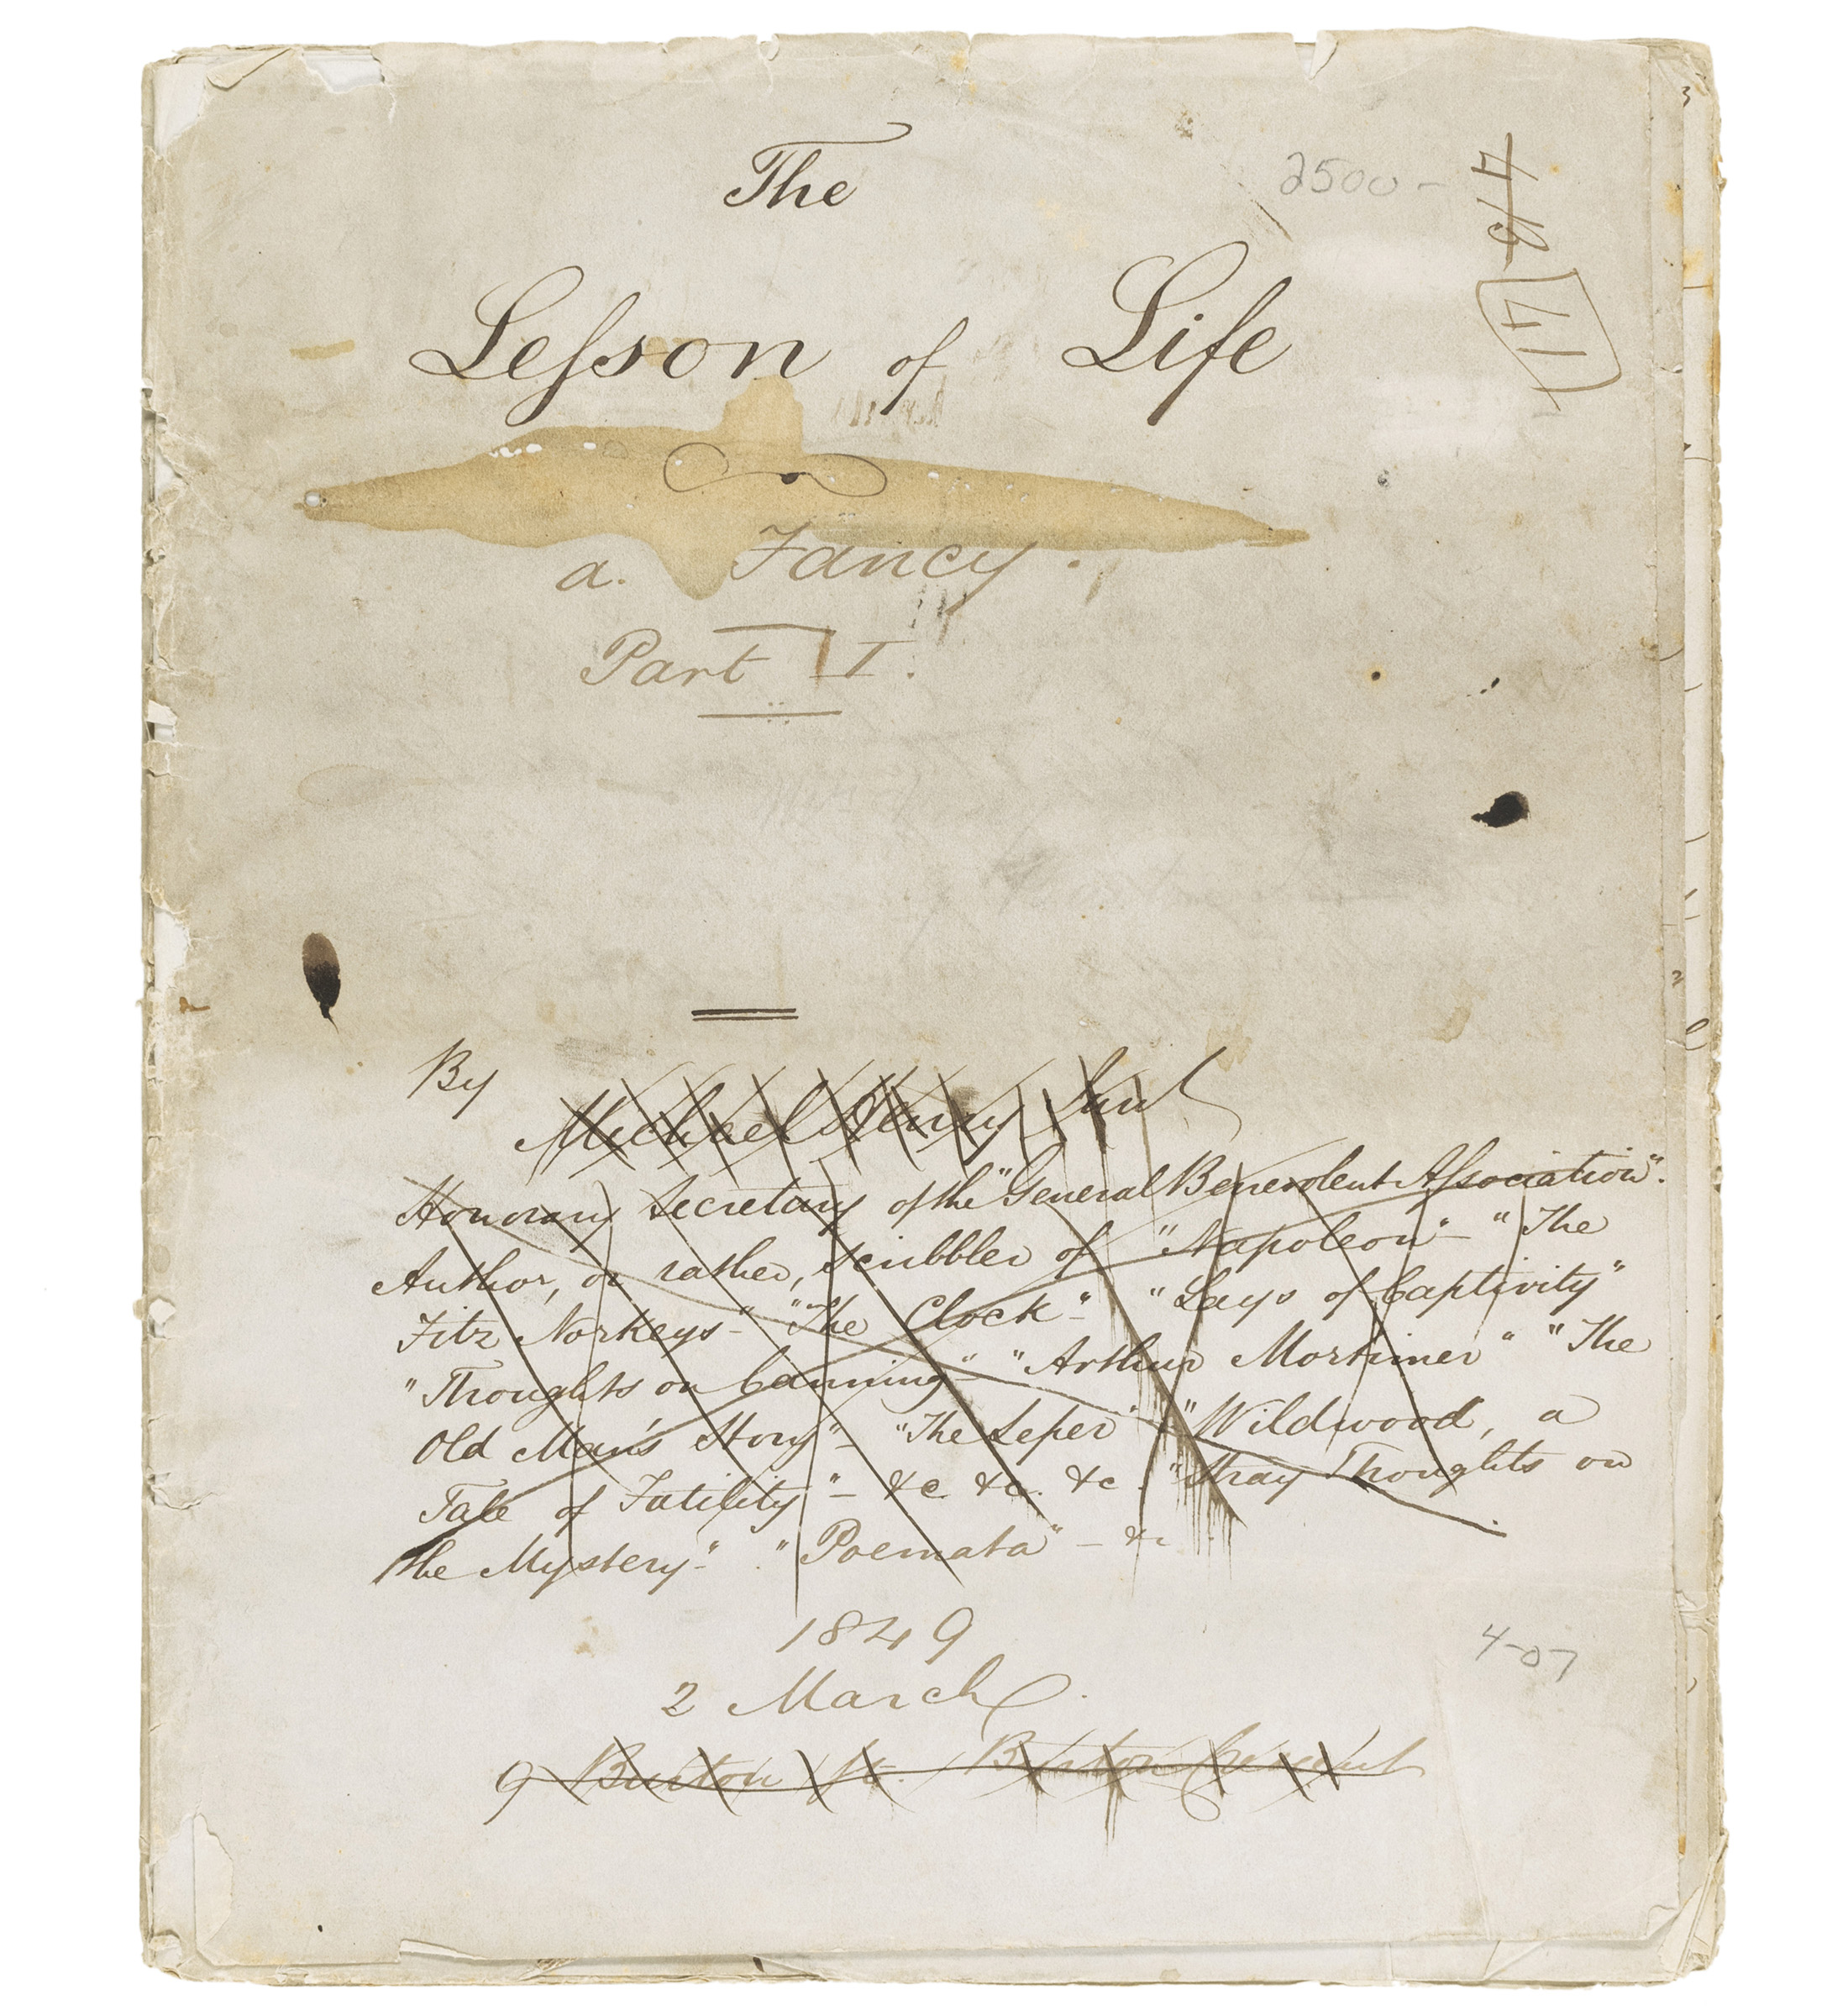 The
2500 -
Leſson of Life
a. Fancy.
Part I.
By
Michael Henry
Honorary Secretary of the "General Benevolent Aſsociation".
Author, or rather, scribbler of "Napoleon" - "The
Fitz Norkeys" - "The Clock" - "Lays of Captivity"
"Thoughts on Canning" - "Arthur Mortimer" "The
Old Man's Story" - "The Leper" - "Wildwood, a
Tale of Futility" - &c &c. &c. "Stray Thoughts on
the Mystery." "Poemata" - &c.
1849
4-07
2 March.
9 Burton St. Burton Crescent